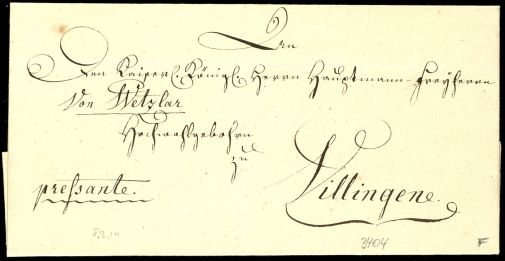 An
Den Kaiserl. Königl. Herrn Hauptmann Freÿherrn
Von Wetzlar
Hochwohlgebohrn
zu
Villingene.
pressante.
3404
F